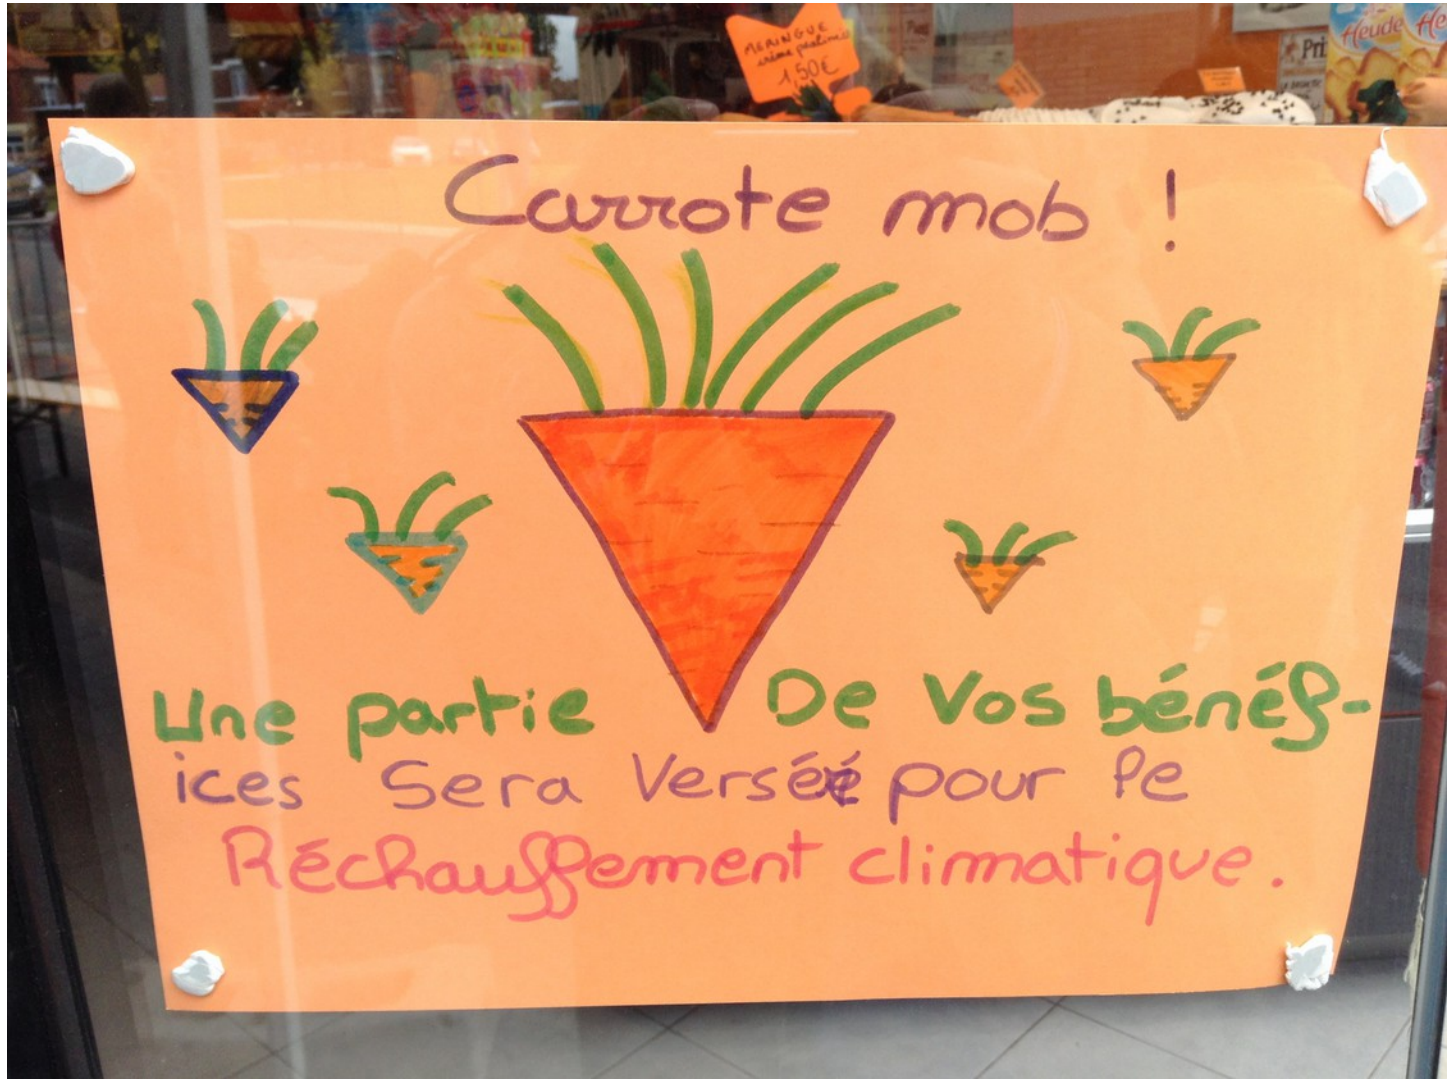 MERINGUE
crème pralinée
1,50€
Heude
He
Pri
Carrote mob !
Une partie De Vos bénéf-
ices Sera Versée pour le
Réchauffement climatique.